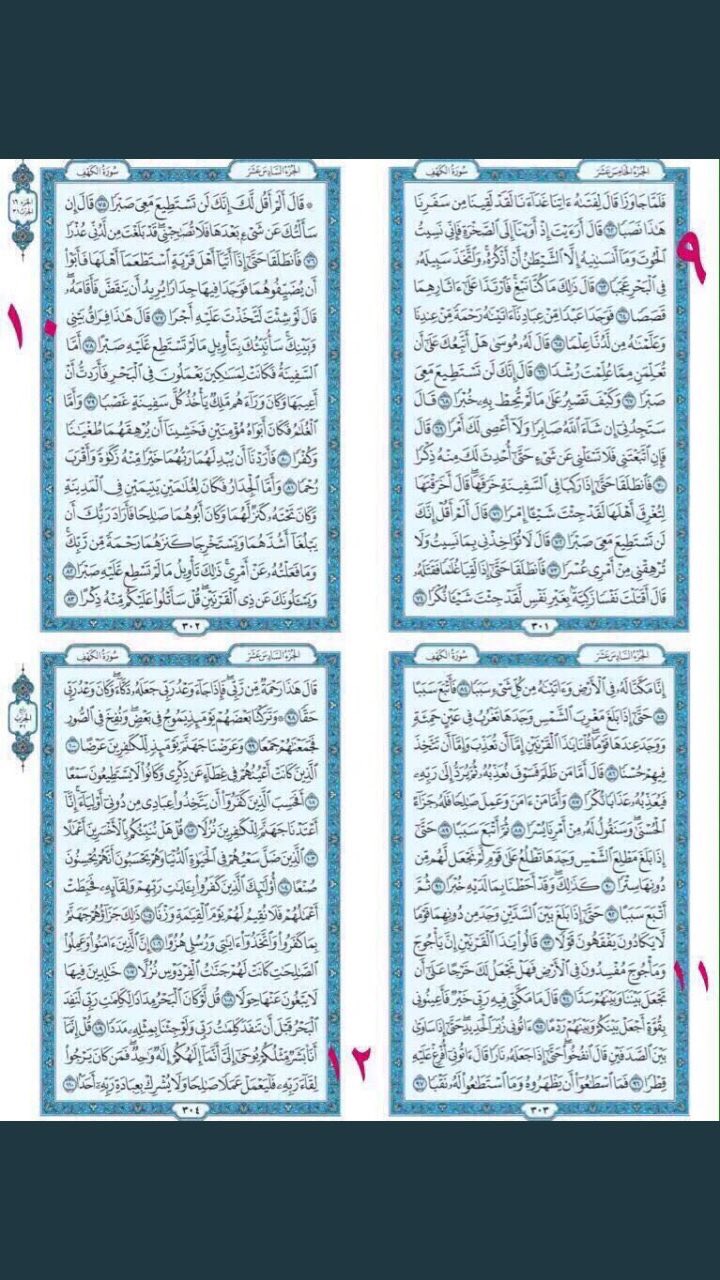 الجزء الخامس عشر
سورة الكهف
فلما جاوزا قال لفتىه ءاتنا غداءنا لقد لقينا من سفرنا
هذا نصبا ٦٢ قال أرءيت إذ أوينا إلى الصخرة فإني نسيت
الحوت وما أنسىنيه إلا الشيطن أن أذكره واتخذ سبيله
في البحر عجبا ٦٣ قال ذلك ما كنا نبغ فارتدا على ءاثارهما
قصصا ٦٤ فوجدا عبدا من عبادنا ءاتينه رحمة من عندنا
وعلمنه من لدنا علما ٦٥ قال له موسى هل أتبعك على أن
تعلمن مما علمت رشدا ٦٦ قال إنك لن تستطيع معي
صبرا ٦٧ وكيف تصبر على ما لم تحط به خبرا ٦٨ قال
ستجدني إن شاء الله صابرا ولا أعصي لك أمرا ٦٩ قال
فإن اتبعتني فلا تسءلني عن شيء حتى أحدث لك منه ذكرا
٧٠ فانطلقا حتى إذا ركبا في السفينة خرقها قال أخرقتها
لتغرق أهلها لقد جئت شيءا إمرا ٧١ قال ألم أقل إنك
لن تستطيع معي صبرا ٧٢ قال لا تؤاخذني بما نسيت ولا
ترهقني من أمري عسرا ٧٣ فانطلقا حتى إذا لقيا غلما فقتله
قال أقتلت نفسا زكية بغير نفس لقد جئت شيءا نكرا ٧٤
٣٠١
٩
الجزء السادس عشر
سورة الكهف
۞ قال ألم أقل لك إنك لن تستطيع معي صبرا ٧٥ قال إن
سألتك عن شيء بعدها فلا تصحبني قد بلغت من لدني عذرا
٧٦ فانطلقا حتى إذا أتيا أهل قرية استطعما أهلها فأبوا
أن يضيفوهما فوجدا فيها جدارا يريد أن ينقض فأقامه
قال لو شئت لتخذت عليه أجرا ٧٧ قال هذا فراق بيني
وبينك سأنبئك بتأويل ما لم تستطع عليه صبرا ٧٨ أما
السفينة فكانت لمسكين يعملون في البحر فأردت أن
أعيبها وكان وراءهم ملك يأخذ كل سفينة غصبا ٧٩ وأما
الغلم فكان أبواه مؤمنين فخشينا أن يرهقهما طغينا
وكفرا ٨٠ فأردنا أن يبدلهما ربهما خيرا منه زكوة وأقرب
رحما ٨١ وأما الجدار فكان لغلمين يتيمين في المدينة
وكان تحته كنز لهما وكان أبوهما صلحا فأراد ربك أن
يبلغا أشدهما ويستخرجا كنزهما رحمة من ربك
وما فعلته عن أمري ذلك تأويل ما لم تسطع عليه صبرا ٨٢
ويسءلونك عن ذي القرنين قل سأتلوا عليكم منه ذكرا ٨٣
٣٠٢
١٠
الجزء السادس عشر
سورة الكهف
إنا مكنا له في الأرض وءاتينه من كل شيء سببا ٨٤ فأتبع سببا
٨٥ حتى إذا بلغ مغرب الشمس وجدها تغرب في عين حمئة
ووجد عندها قوما قلنا يذا القرنين إما أن تعذب وإما أن تتخذ
فيهم حسنا ٨٦ قال أما من ظلم فسوف نعذبه ثم يرد إلى ربه
فيعذبه عذابا نكرا ٨٧ وأما من ءامن وعمل صلحا فله جزاء
الحسنى وسنقول له من أمرنا يسرا ٨٨ ثم أتبع سببا ٨٩ حتى
إذا بلغ مطلع الشمس وجدها تطلع على قوم لم نجعل لهم من
دونها سترا ٩٠ كذلك وقد أحطنا بما لديه خبرا ٩١ ثم
أتبع سببا ٩٢ حتى إذا بلغ بين السدين وجد من دونهما قوما
لا يكادون يفقهون قولا ٩٣ قالوا يذا القرنين إن يأجوج
ومأجوج مفسدون في الأرض فهل نجعل لك خرجا على أن
تجعل بيننا وبينهم سدا ٩٤ قال ما مكني فيه ربي خير فأعينوني
بقوة أجعل بينكم وبينهم ردما ٩٥ ءاتوني زبر الحديد حتى إذا ساوى
بين الصدفين قال انفخوا حتى إذا جعله نارا قال ءاتوني أفرغ عليه
قطرا ٩٦ فما اسطعوا أن يظهروه وما استطعوا له نقبا ٩٧
٣٠٣
١١
الجزء السادس عشر
سورة الكهف
قال هذا رحمة من ربي فإذا جاء وعد ربي جعله دكاء وكان وعد ربي
حقا ٩٨ وتركنا بعضهم يومئذ يموج في بعض ونفخ في الصور
فجمعنهم جمعا ٩٩ وعرضنا جهنم يومئذ للكفرين عرضا ١٠٠
الذين كانت أعينهم في غطاء عن ذكري وكانوا لا يستطيعون سمعا
١٠١ أفحسب الذين كفروا أن يتخذوا عبادي من دوني أولياء إنا
أعتدنا جهنم للكفرين نزلا ١٠٢ قل هل ننبئكم بالأخسرين أعملا
١٠٣ الذين ضل سعيهم في الحيوة الدنيا وهم يحسبون أنهم يحسنون
صنعا ١٠٤ أولئك الذين كفروا بءايت ربهم ولقائه فحبطت
أعملهم فلا نقيم لهم يوم القيمة وزنا ١٠٥ ذلك جزاؤهم جهنم
بما كفروا واتخذوا ءايتي ورسلي هزوا ١٠٦ إن الذين ءامنوا وعملوا
الصلحت كانت لهم جنت الفردوس نزلا ١٠٧ خلدين فيها
لا يبغون عنها حولا ١٠٨ قل لو كان البحر مدادا لكلمت ربي لنفد
البحر قبل أن تنفد كلمت ربي ولو جئنا بمثله مددا ١٠٩ قل إنما
أنا بشر مثلكم يوحى إلي أنما إلهكم إله وحد فمن كان يرجوا
لقاء ربه فليعمل عملا صلحا ولا يشرك بعبادة ربه أحدا ١١٠
٣٠٤
١٢